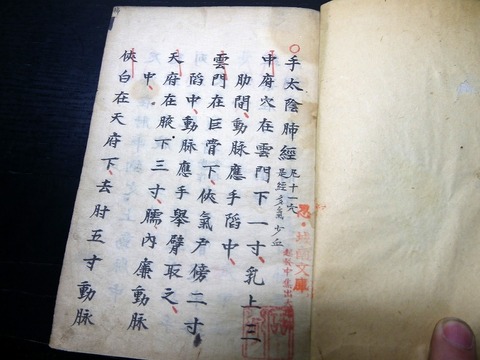 手太陰肺經 凡十一穴
是經多氣少血
中府穴在雲門下一寸乳上三
肋間動脉應手䧟中
雲門在巨骨下俠氣戶傍二寸
䧟中動脉應手舉臂取之
天府在腋下三寸臑內廉動脉
中
俠白在天府下去肘五寸動脉
文庫